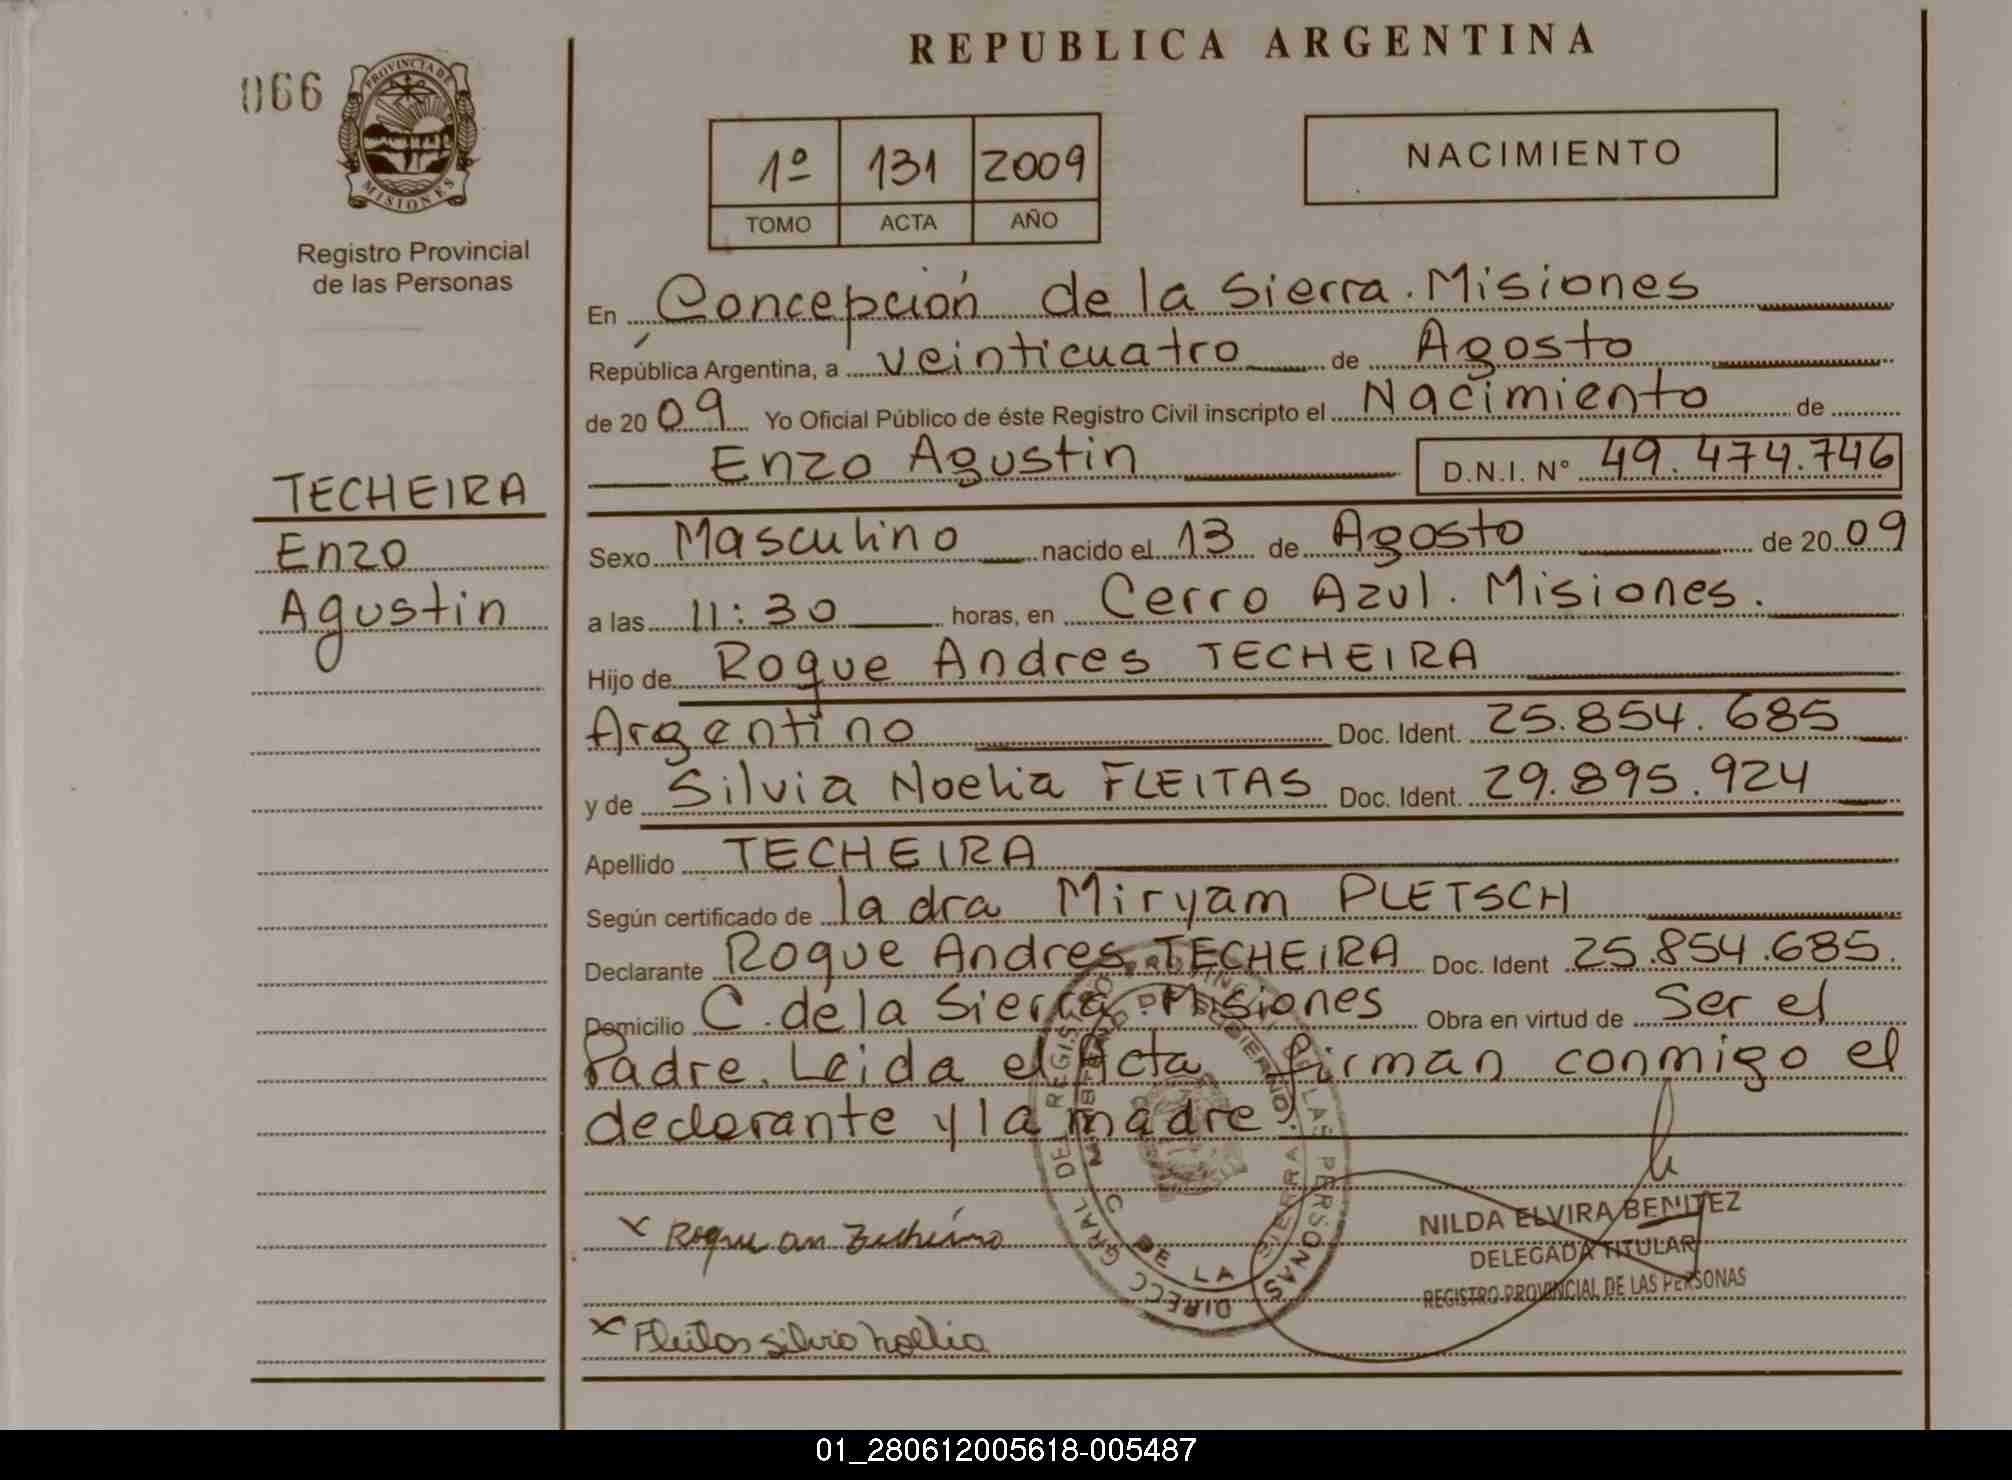 REPUBLICA ARGENTINA
066
PROVINCIA DE MISIONES
Registro Provincial
de las Personas
1º 131 2009
TOMO ACTA AÑO
NACIMIENTO
En Concepción de la Sierra. Misiones
República Argentina, a veinticuatro de Agosto
de 2009 Yo Oficial Público de éste Registro Civil inscripto el Nacimiento de
Enzo Agustin D.N.I. Nº 49.474.746
TECHEIRA
Enzo
Agustin
Sexo Masculino nacido el 13 de Agosto de 2009
a las 11:30 horas, en Cerro Azul. Misiones.
Hijo de Roque Andres TECHEIRA
Argentino Doc. Ident. 25.854.685
y de Silvia Noelia FLEITAS Doc. Ident. 29.895.924
Apellido TECHEIRA
Según certificado de la dra Miryam PLETSCH
Declarante Roque Andres TECHEIRA Doc. Ident 25.854.685.
Domicilio C. de la Sierra. Misiones Obra en virtud de Ser el
Padre. Leida el Acta firman conmigo el
declarante y la madre.
DIRECC GRAL DEL REGISTRO PROVINCIAL DE LAS PERSONAS
C DE LA SIERRA
NILDA ELVIRA BENITEZ
DELEGADA TITULAR
REGISTRO PROVINCIAL DE LAS PERSONAS
x Roque an
x Fleitas silvia noelia
01_280612005618-005487